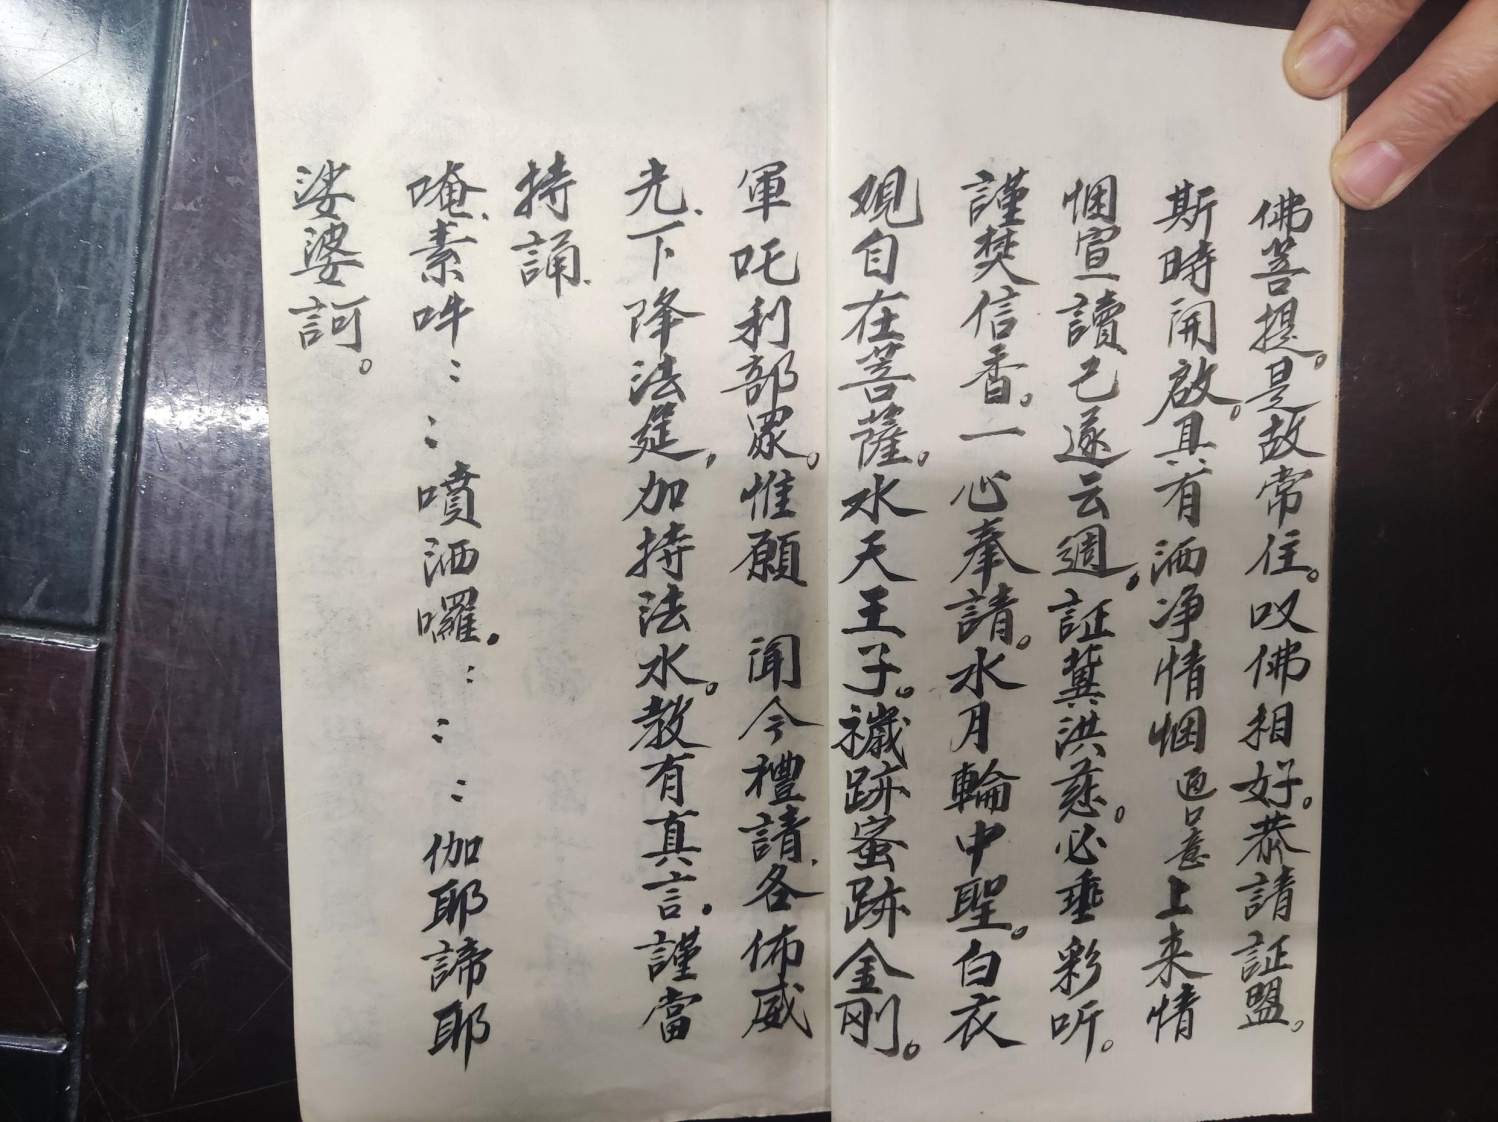 佛菩提。是故常住。叹佛相好。恭請証盟。
斯時開啟。具有洒净情悃 上来情
悃宣讀已遂云週。証冀洪慈。必垂彩听。
謹焚信香。一心奉請。水月輪中聖。白衣
观自在菩薩。水天王子。穢跡蜜跡金刚。
軍吒利部眾。惟願 闻今禮請、各佈威
光、下降法筵,加持法水。教有真言。謹當
持誦、
唵、素吽::噴洒囉。:::伽耶諦耶
娑婆訶。